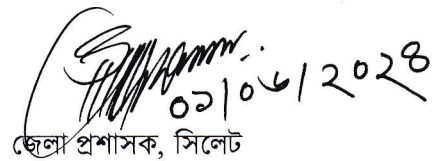 ০১/০৬/২০২৪
জেলা প্রশাসক, সিলেট